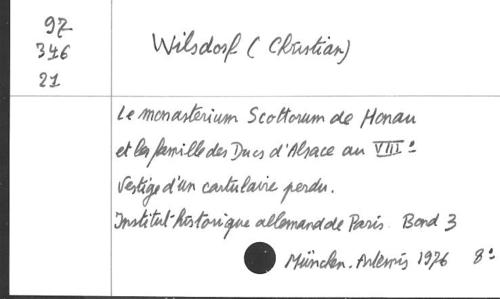 97
346
21
Wilsdorf (Christian)
Le monasterium Scottorum de Honau
et la famille des Ducs d'Alsace au VIIIe
Vestige d'un cartulaire perdu.
Institut historique allemand de Paris. Band 3
München. Artemis 1976 8°